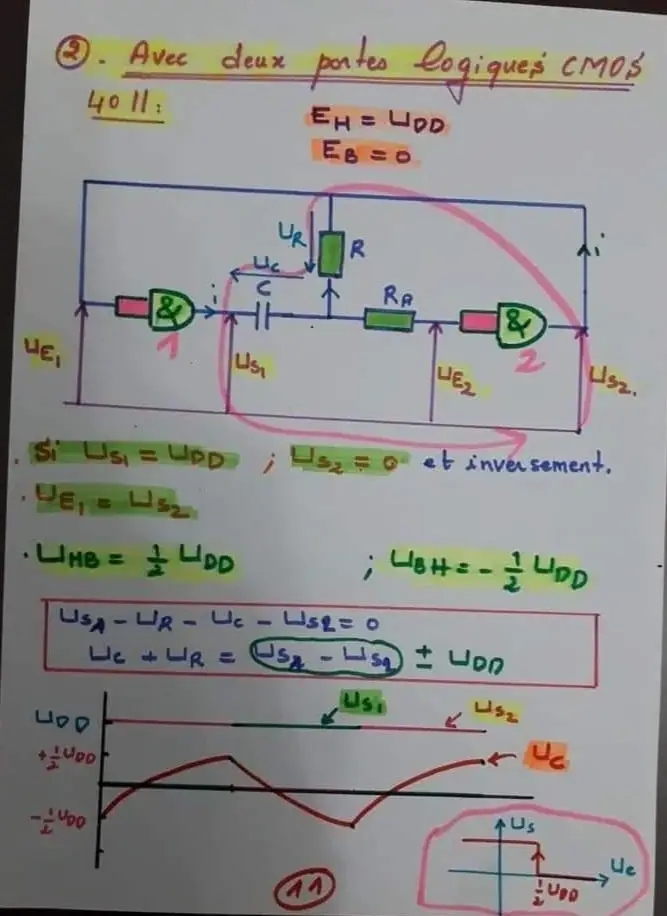 ②. Avec deux portes logiques CMOS
4011:
E_H = U_DD
E_B = 0
U_R
R
U_C
C
i
i
R_A
&
1
&
2
U_E1
U_S1
U_E2
U_S2.
. Si U_S1 = U_DD ; U_S2 = 0 et inversement.
. U_E1 = U_S2
. U_HB = 1/2 U_DD ; U_BH = - 1/2 U_DD
U_SA - U_R - U_C - U_S2 = 0
U_C + U_R = U_SA - U_S2 ± U_DD
U_DD
U_S1
U_S2
+1/2 U_DD
U_C
-1/2 U_DD
U_S
U_e
1/2 U_DD
11